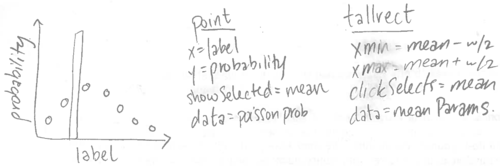 probability
label
point
x=label
y=probability
showSelected=mean
data=poisson prob
tallrect
xmin=mean-w/2
xmax=mean+w/2
clickSelects=mean
data=mean Params.